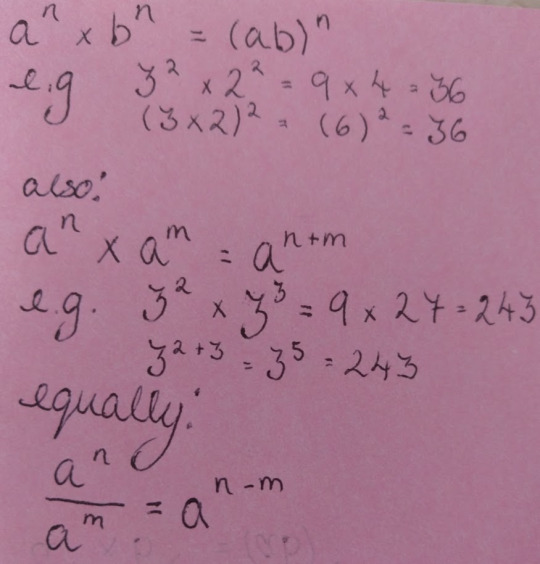 aⁿ × bⁿ = (ab)ⁿ
e.g 3² × 2² = 9 × 4 = 36
(3×2)² = (6)² = 36
also:
aⁿ × aᵐ = aⁿ⁺ᵐ
e.g. 3² × 3³ = 9 × 27 = 243
3²⁺³ = 3⁵ = 243
equally:
aⁿ/aᵐ = aⁿ⁻ᵐ